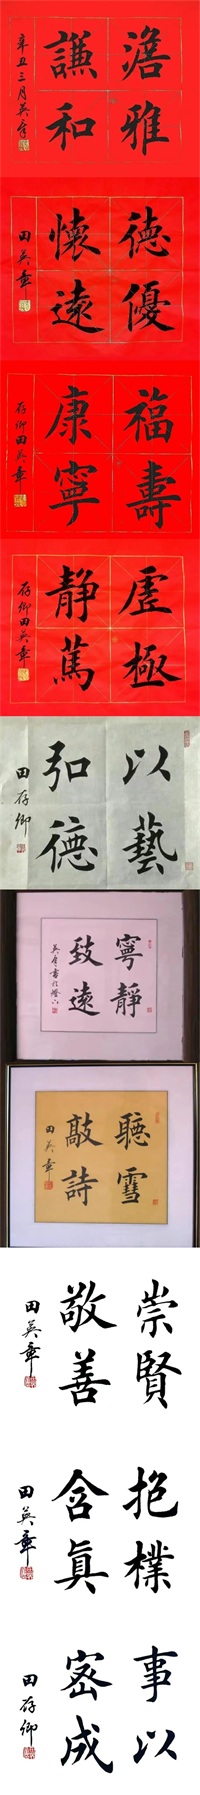 澹雅
謙和
辛丑三月英章
德優
懷遠
田英章
福壽
康寧
存卿田英章
虛極
靜篤
存卿田英章
以藝
弘德
田存卿
寧靜
致遠
英章書於燈下
聽雪
敲詩
田英章
崇賢
敬善
田英章
抱樸
含眞
田英章
事以
密成
田存卿